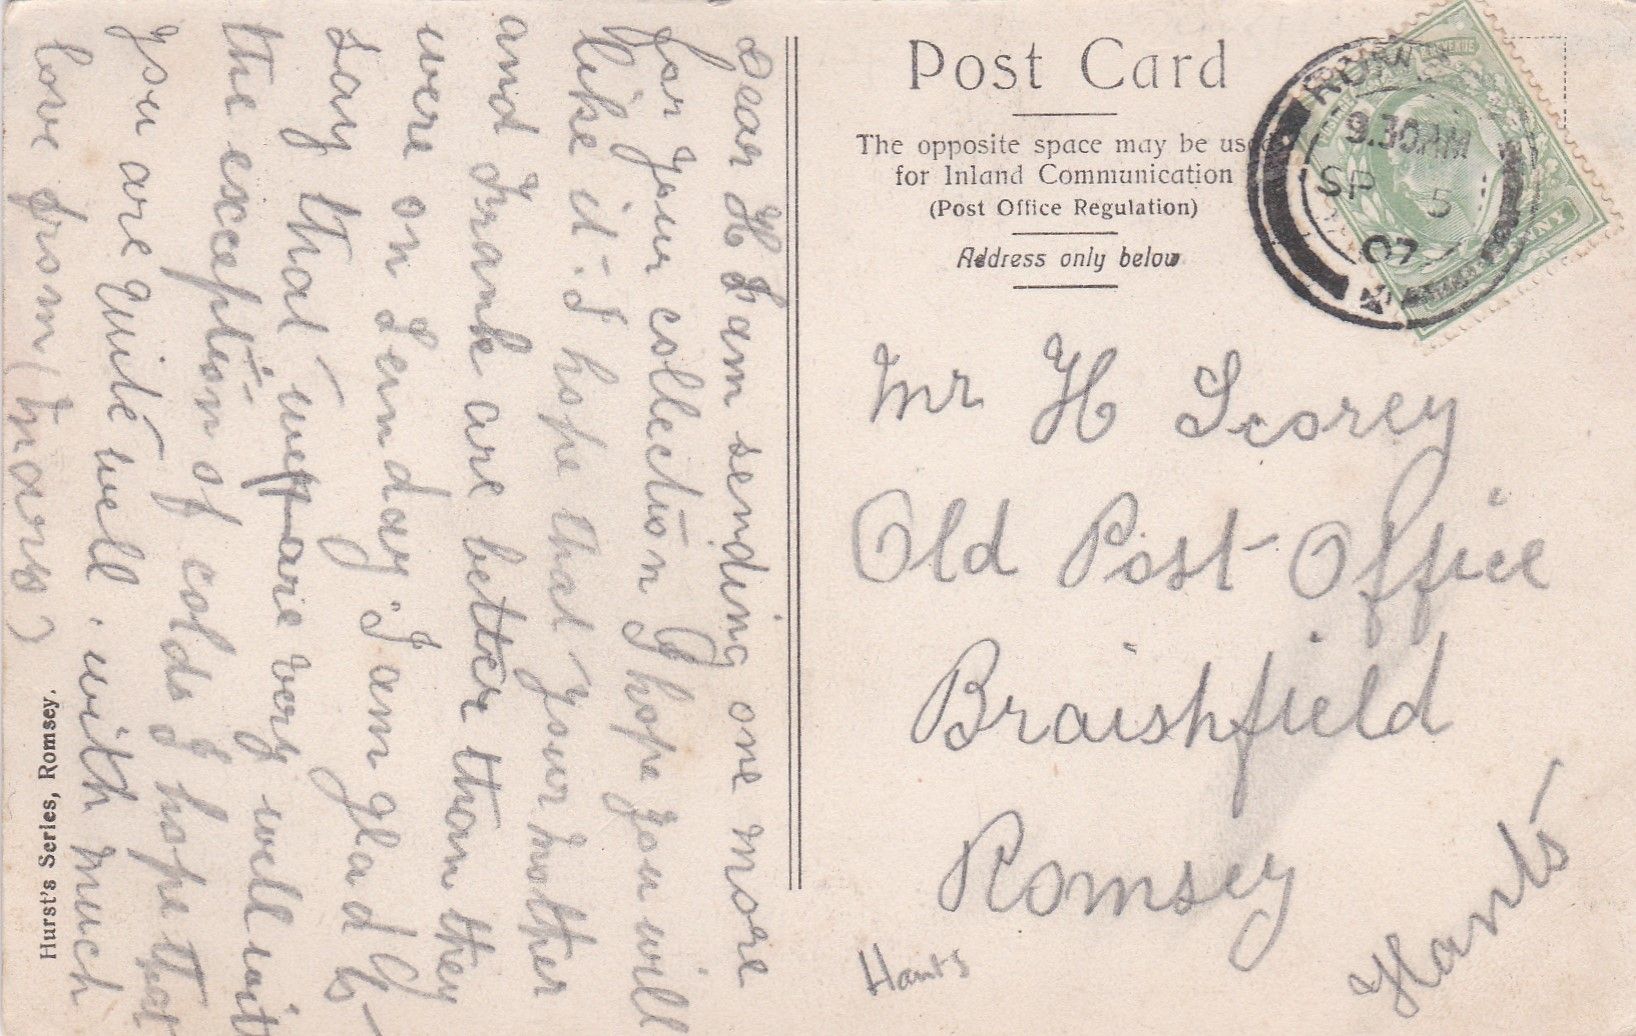 Dear H I am sending one more
for your collection I hope you will
like it. I hope that your mother
and Frank are better than they
were on Sunday. I am glad to
say that we are very well with
the exception of colds I hope that
you are quite well. with much
love from
Hurst's Series, Romsey.
Post Card
The opposite space may be used
for Inland Communication
(Post Office Regulation)
Address only below
9.30AM
SP 5
07
Mr H Scorey
Old Post Office
Braishfield
Romsey
Hants
Hants